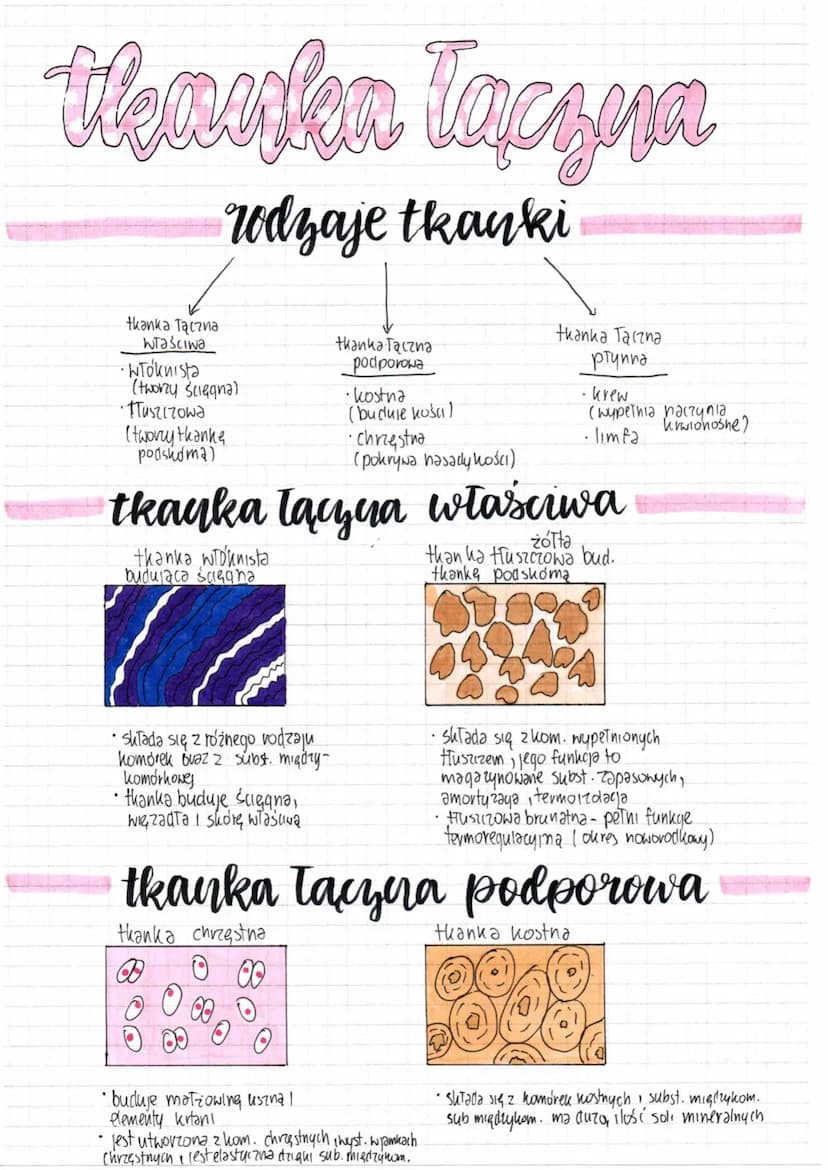 tkanka łączna
rodzaje tkanki
tkanka łączna
właściwa
· włóknista
(tworzy ścięgna)
· tłuszczowa
(tworzy tkankę
podskórną)
tkanka łączna
podporowa
· kostna
(buduje kości)
· chrzęstna
(pokrywa nasady kości)
tkanka łączna
płynna
· krew
(wypełnia naczynia
krwionośne)
· limfa
tkanka łączna właściwa
tkanka włóknista
budująca ścięgna
żółta
tkanka tłuszczowa bud.
tkankę podskórną
· składa się z różnego rodzaju
komórek oraz z subst. między-
komórkowej
· tkanka buduje ścięgna,
więzadła i skórę właściwą
· składa się z kom. wypełnionych
tłuszczem, jego funkcja to
magazynowane subst. zapasowych,
amortyzacja, termoizolacja
· tłuszczowa brunatna - pełni funkcje
termoregulacyjną (okres noworodkowy)
tkanka łączna podporowa
tkanka chrzęstna
tkanka kostna
· buduje małżowinę uszną i
elementy krtani
· jest utworzona z kom. chrzęstnych, wyst. w jamkach
chrzęstnych, jest elastyczna dzięki sub. międzykom.
· składa się z komórek kostnych i subst. międzykom.
sub międzykom. ma dużą ilość soli mineralnych